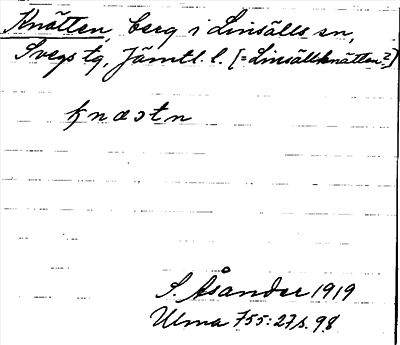 Knätten, berg i Linsälls sn,
Svegs tg, Jämtl. l. [= Linsällknätten?]
knætn
S. Åsander 1919
Ulma 755:27 s. 98